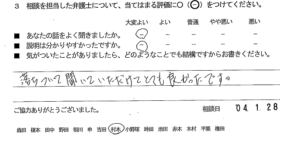 3 相談を担当した弁護士について、当てはまる評価に○(⊖)をつけてください。
大変よい よい 普通 やや悪い 悪い
■ あなたの話をよく聞きましたか。
■ 説明は分かりやすかったですか。
■ 気がついたことがありましたら、どのようなことでも結構ですからお書きください。
落ちついて聞いていただけてとても良かったです。
ご協力ありがとうございました。
相談日 '04.1.28